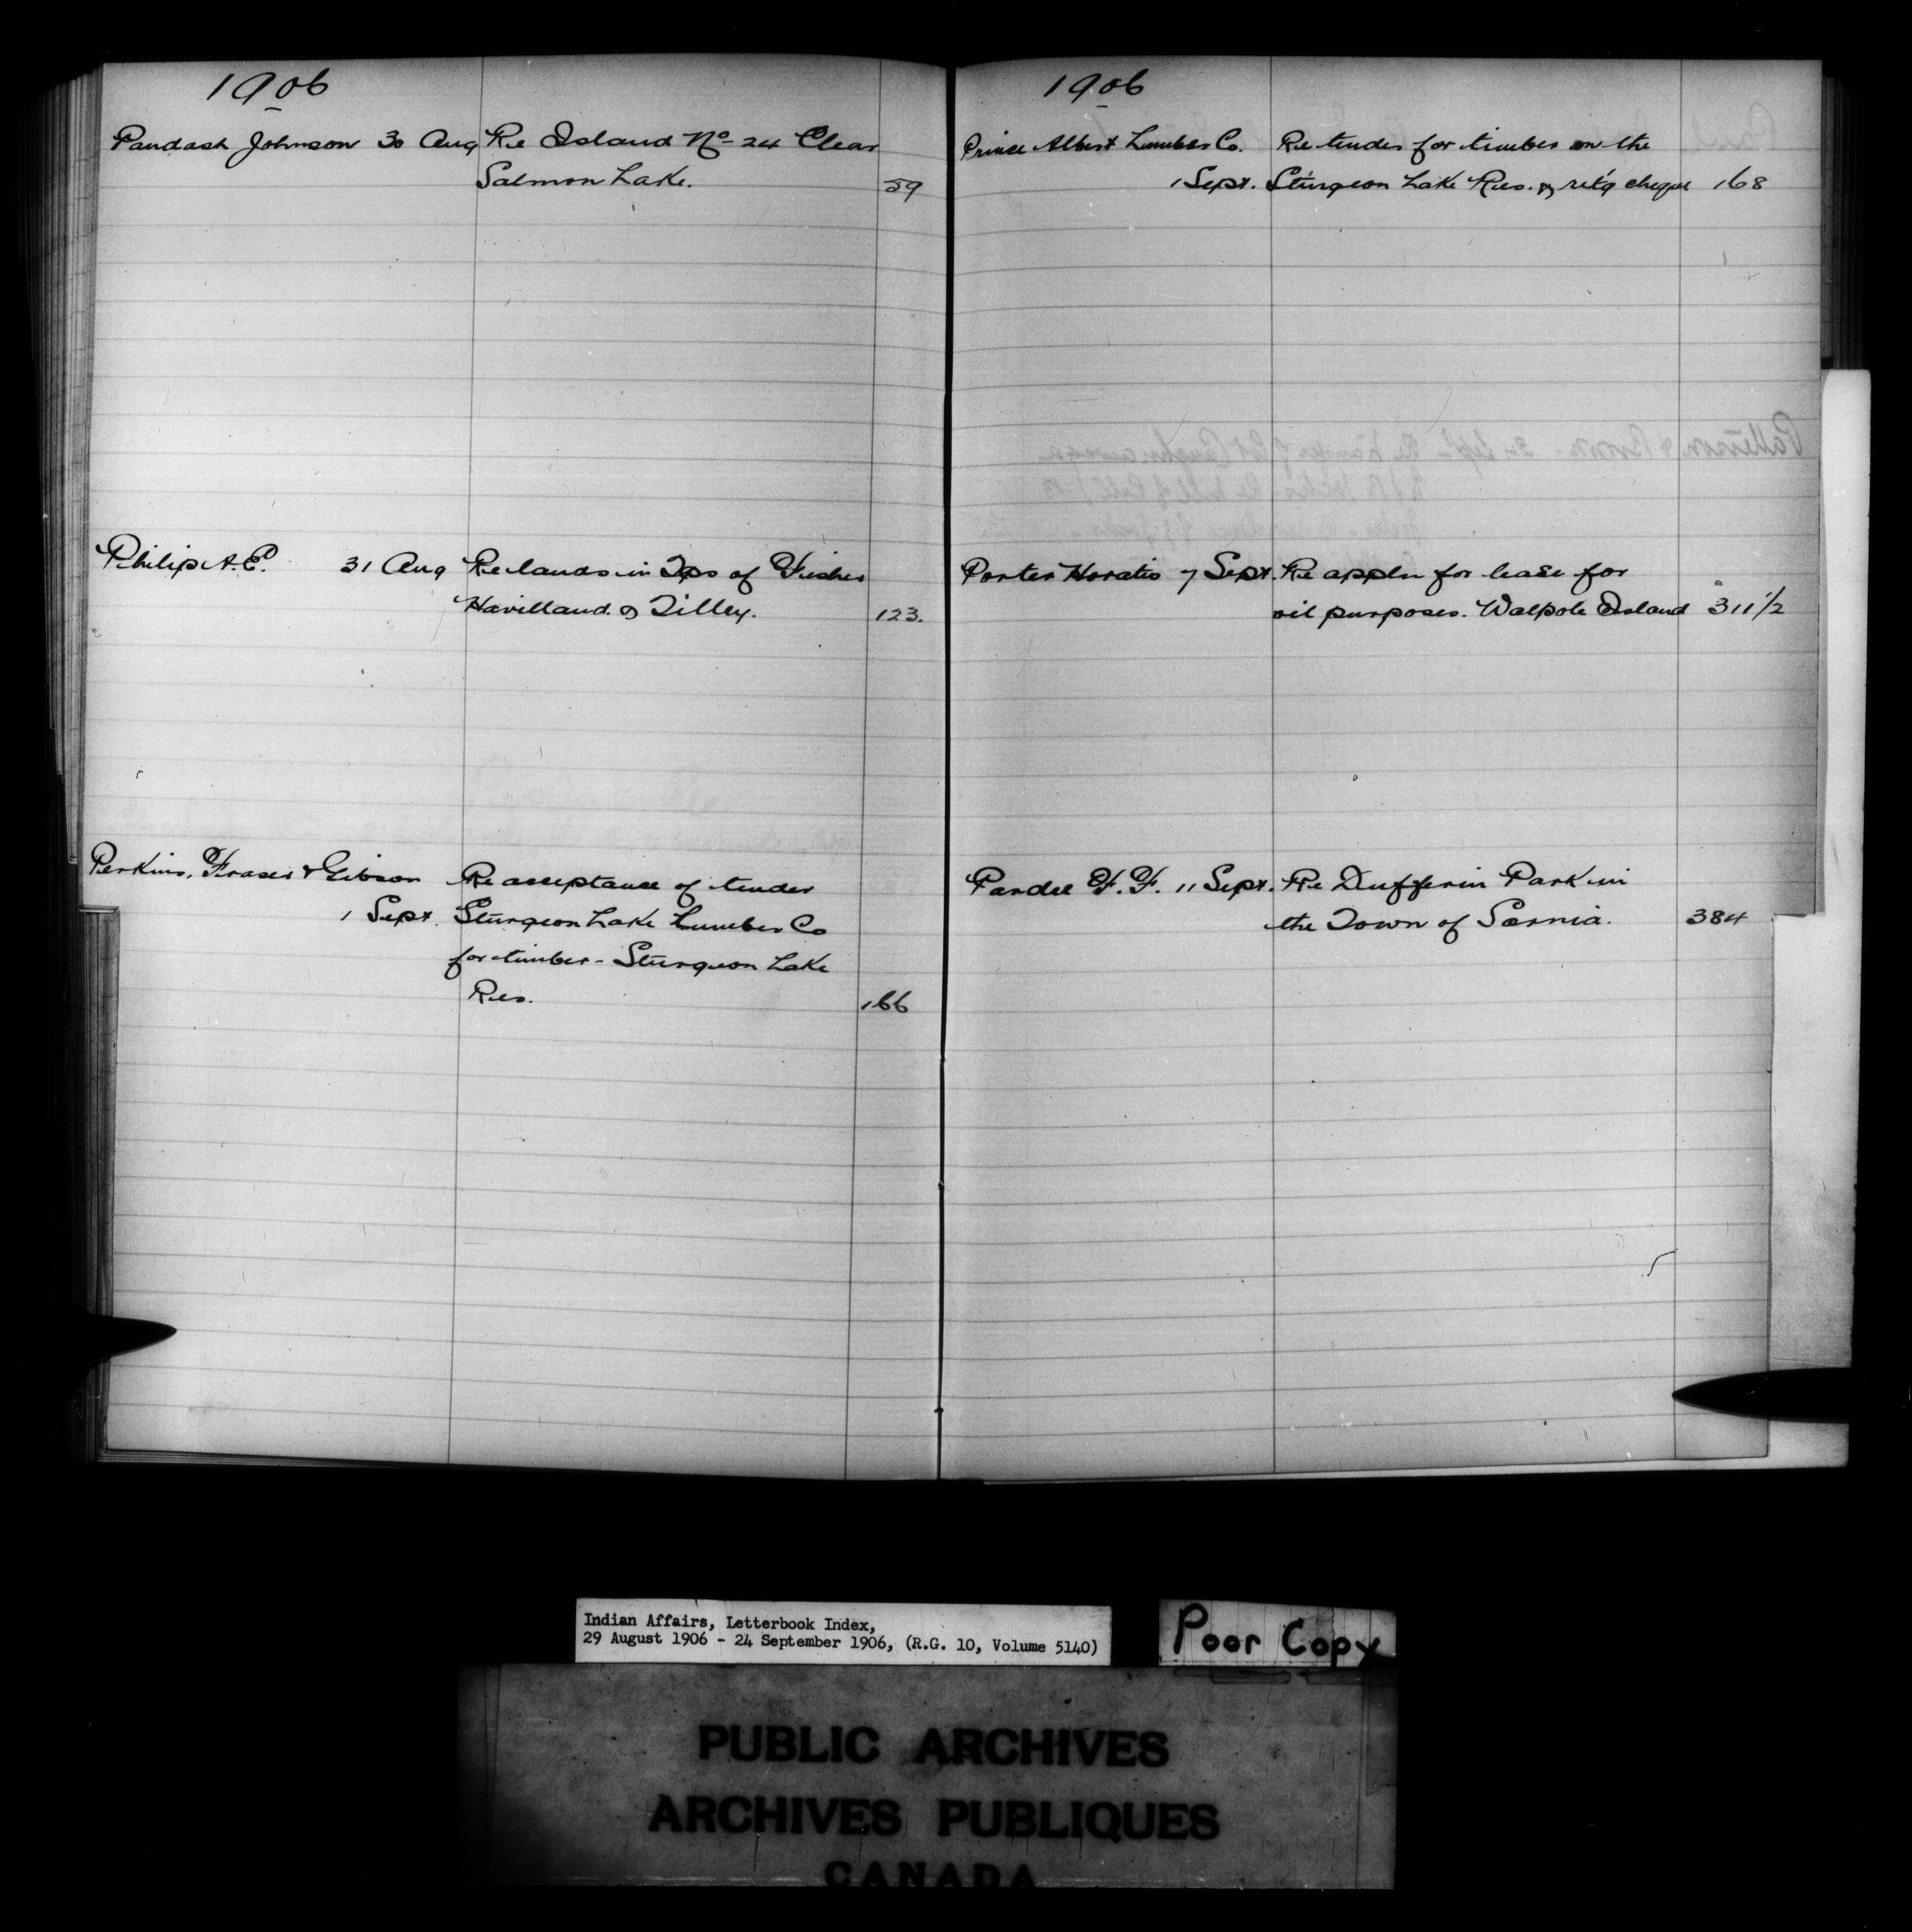 1906
Paudash Johnson 30 Aug Re Island No 24 Clear
Salmon Lake. 59
Philip A.E. 31 Aug Re lands in Tps of Fisher
Havilland & Tilley. 123.
Perkins, Fraser & Gibson Re acceptance of tender
1 Sept. Sturgeon Lake Lumber Co
for timber - Sturgeon Lake
Res. 166
1906
Prince Albert Lumber Co. Re tender for timber on the
1 Sept. Sturgeon Lake Res. & ret'g cheque 168
Porter Horatio 7 Sept. Re appln for lease for
oil purposes. Walpole Island 311 1/2
Pardee F. F. 11 Sept. Re Dufferin Park in
the Town of Sarnia. 384
Indian Affairs, Letterbook Index,
29 August 1906 - 24 September 1906, (R.G. 10, Volume 5140)
Poor Copy
PUBLIC ARCHIVES
ARCHIVES PUBLIQUES
CANADA